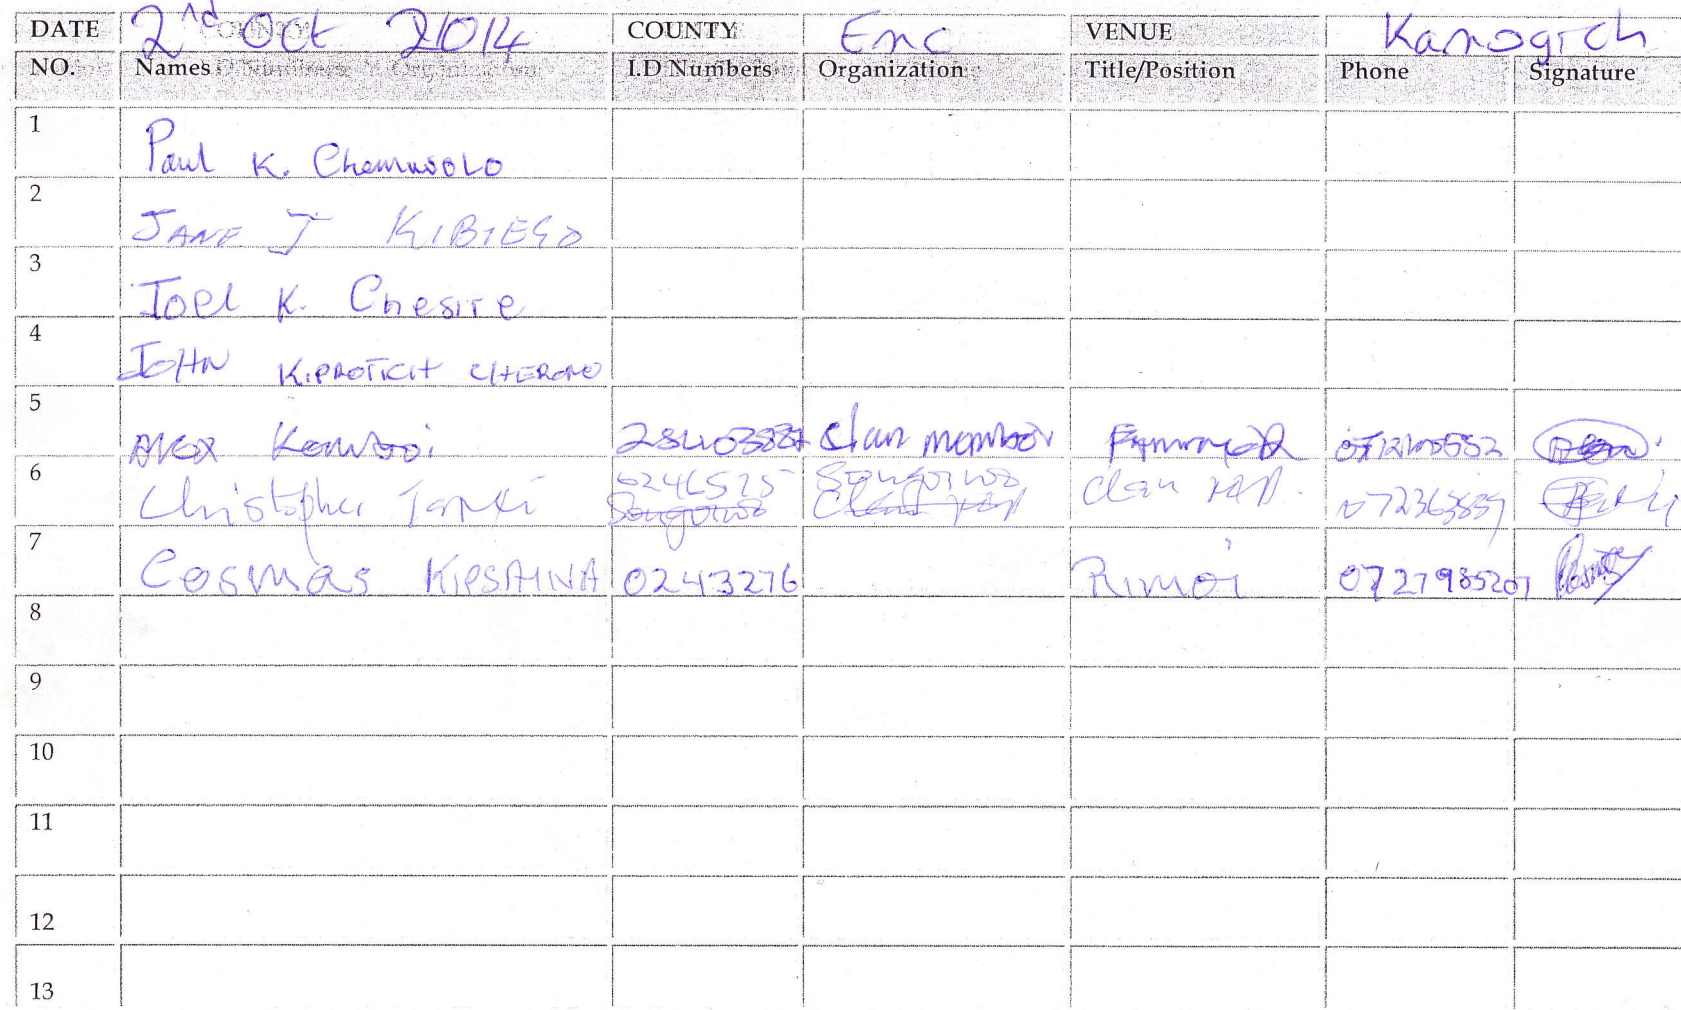 DATE 2nd Oct 2014 COUNTY Emc VENUE Kamogich
NO. Names I.D Numbers Organization Title/Position Phone Signature
1 Paul K. Chemwolo
2 JANE J KIBIEGO
3 Joel K. Chesire
4 JOHN KIPROTICH CHERONO
5 Alex clan member
6 Christopher 0246575 Songorwo clan rep.
Songorwo Clan rep
7 Cosmas KIPSAINA 0243276 Rimoi 0727985207
8
9
10
11
12
13